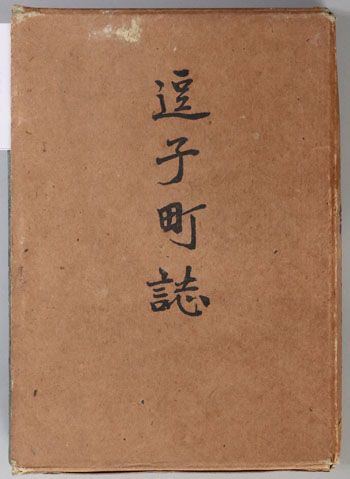 逗子町誌